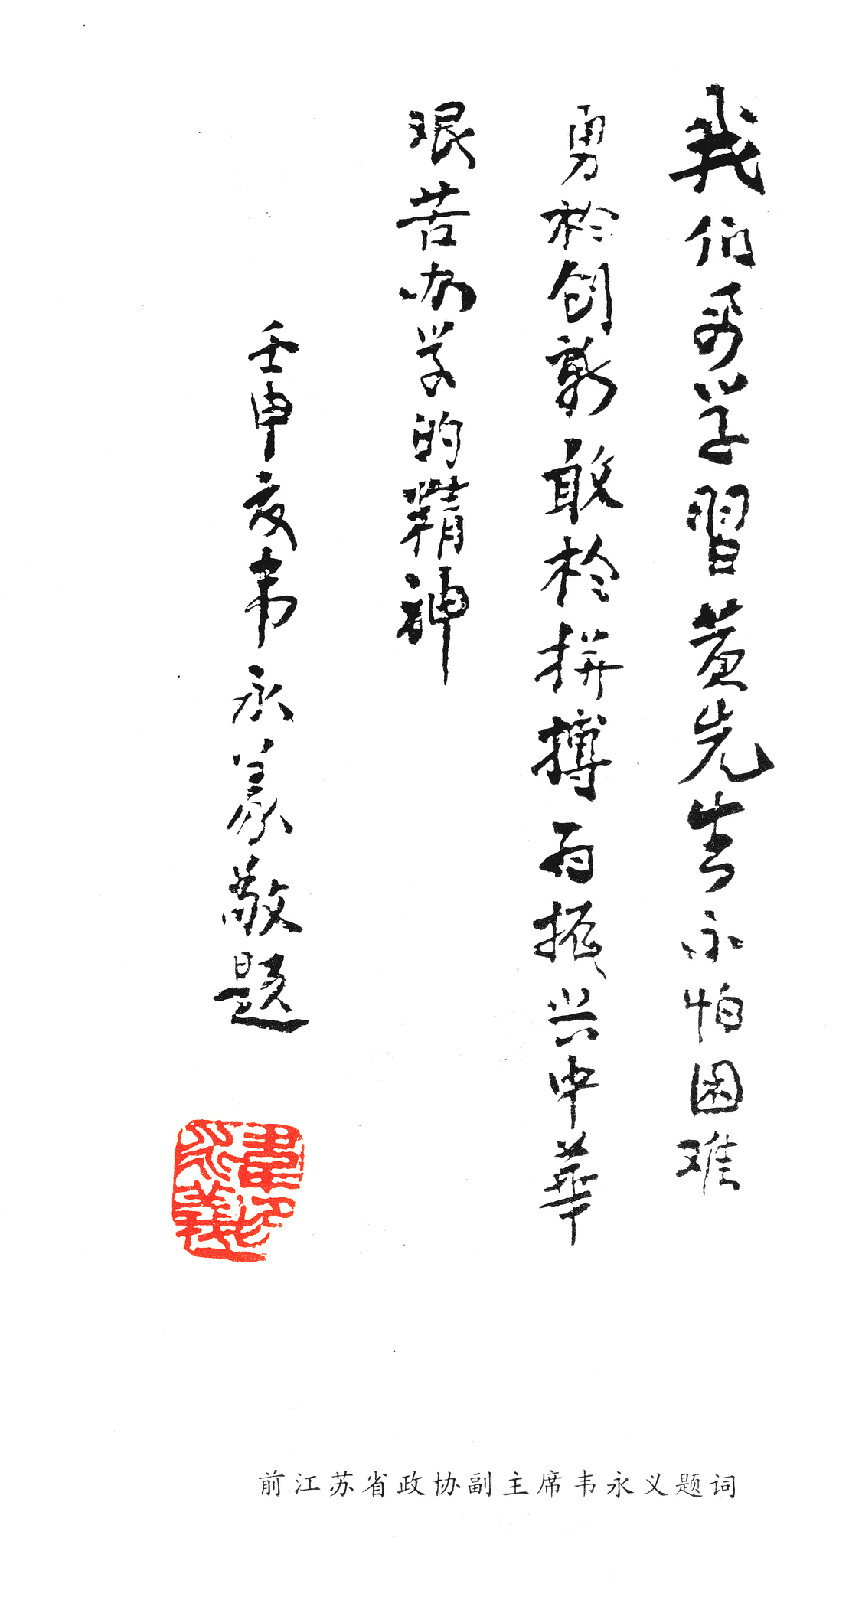 我们要学習黄先生不怕困难
勇於创新敢於拼搏为振兴中华
艰苦办学的精神
壬申夏韦永義敬题
韋永義印
前江苏省政协副主席韦永义题词